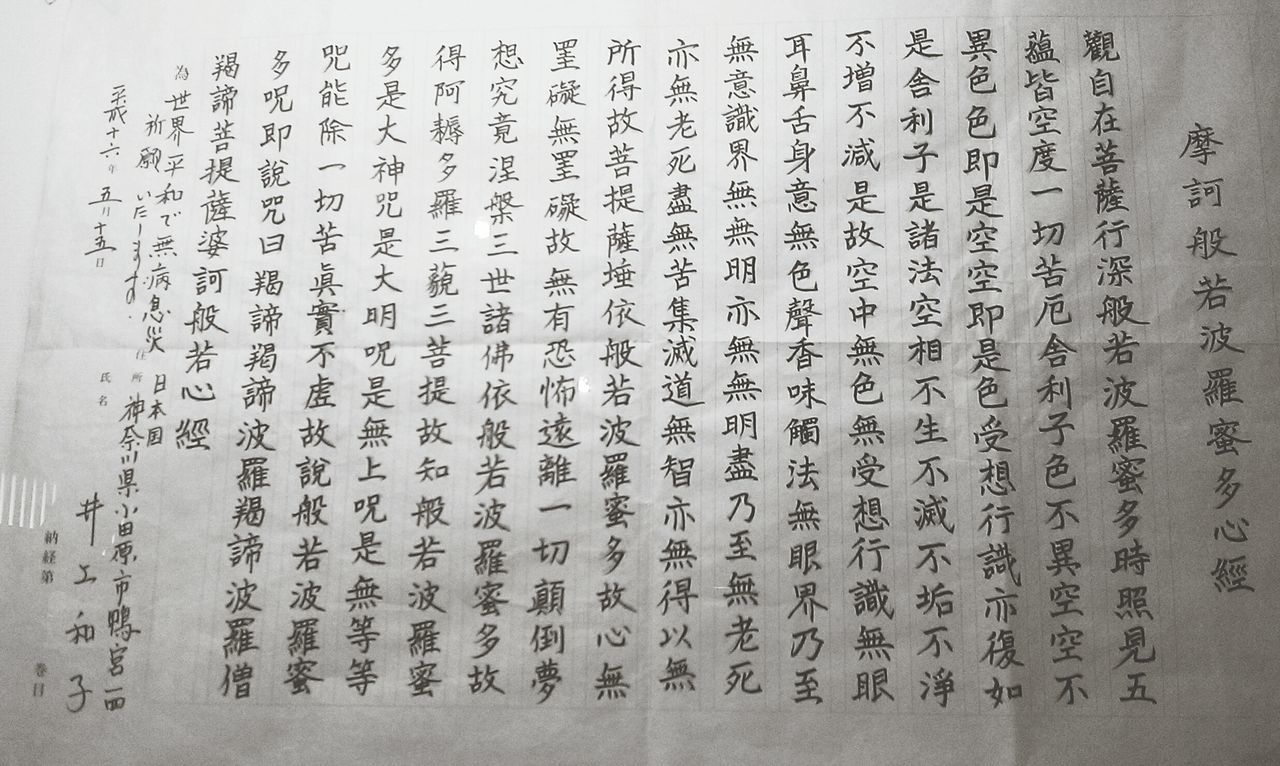 摩訶般若波羅蜜多心經
觀自在菩薩行深般若波羅蜜多時照見五
蘊皆空度一切苦厄舎利子色不異空空不
異色色即是空空即是色受想行識亦復如
是舎利子是諸法空相不生不滅不垢不淨
不増不減是故空中無色無受想行識無眼
耳鼻舌身意無色聲香味觸法無眼界乃至
無意識界無無明亦無無明盡乃至無老死
亦無老死盡無苦集滅道無智亦無得以無
所得故菩提薩埵依般若波羅蜜多故心無
罣礙無罣礙故無有恐怖遠離一切顛倒夢
想究竟涅槃三世諸佛依般若波羅蜜多故
得阿耨多羅三藐三菩提故知般若波羅蜜
多是大神咒是大明呪是無上呪是無等等
咒能除一切苦眞實不虚故說般若波羅蜜
多呪即說咒曰 羯諦羯諦波羅羯諦波羅僧
羯諦菩提薩婆訶般若心經
為 世界平和で無病息災
祈願いたします。
平成十六年 五月十五日
住所 日本国
神奈川県小田原市鴨宮一四
氏名 井上和子
納経第
巻目